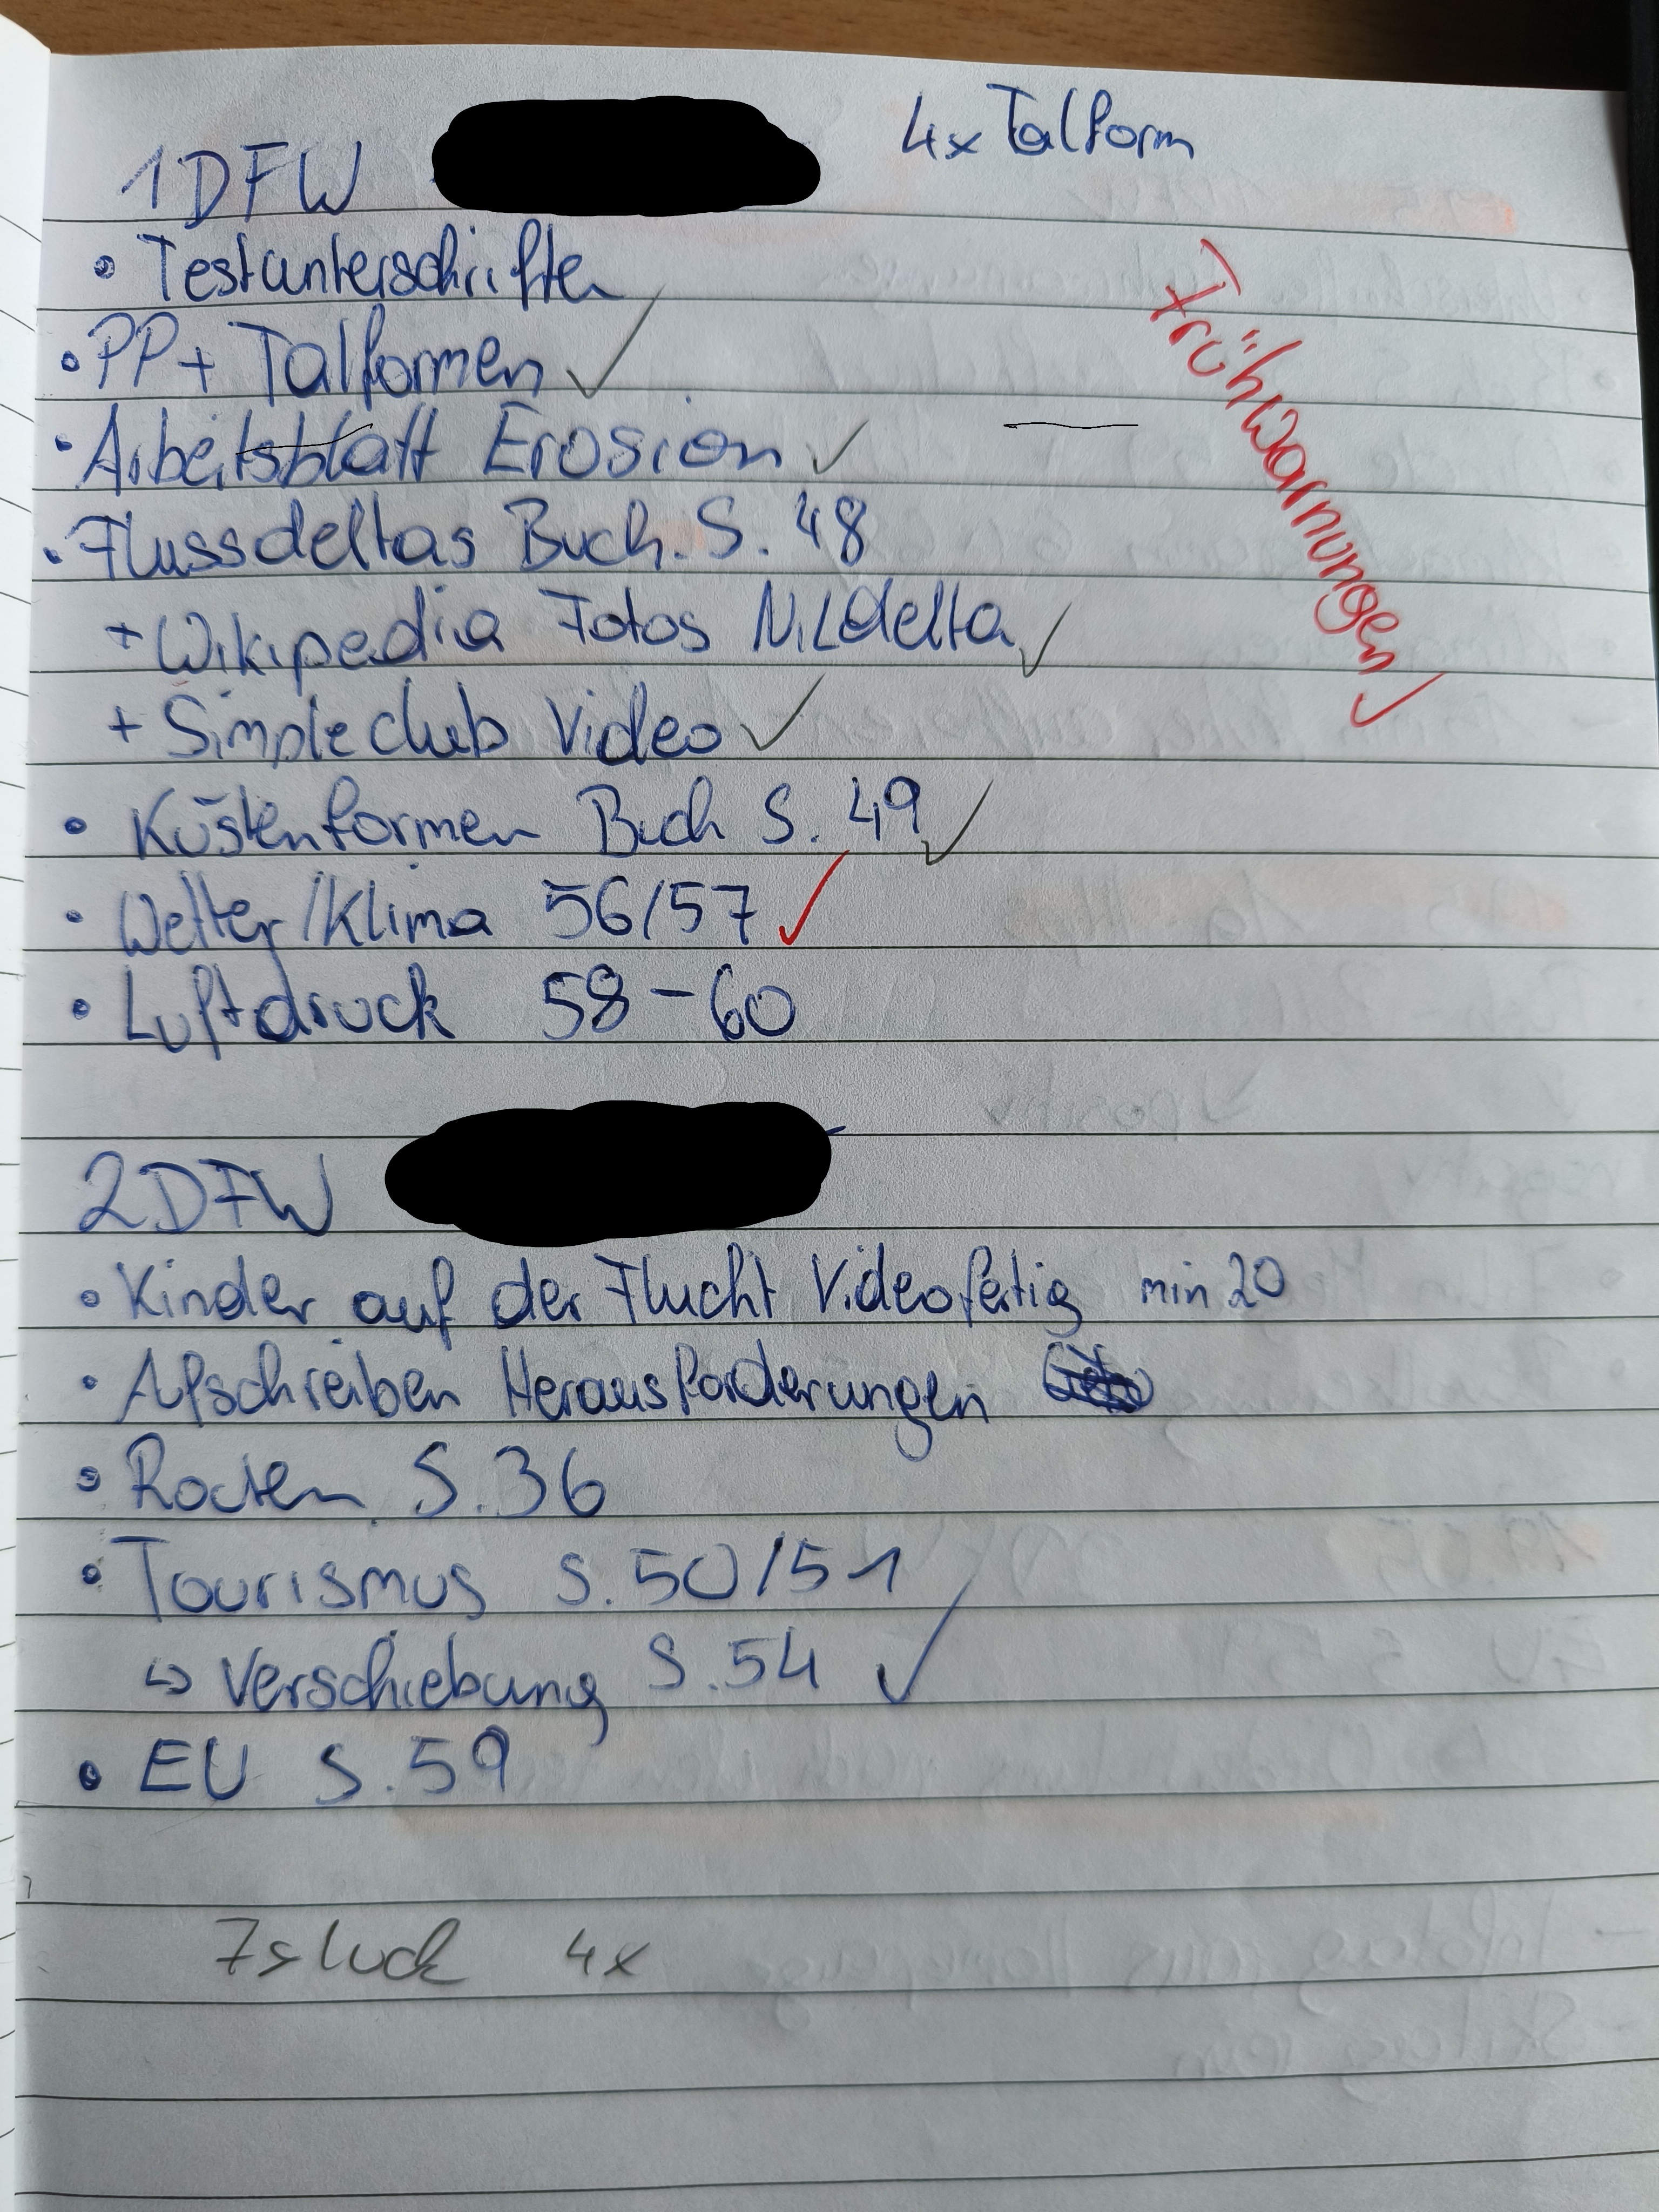 4x Talform
1DFW
• Testunterschriften
• PP + Talformen ✓
• Arbeitsblatt Erosion ✓
• Flussdeltas Buch. S. 48
+ Wikipedia Fotos Nildelta ✓
+ Simpleclub Video ✓
• Küstenformen Buch S. 49 ✓
• Wetter/Klima 56/57 ✓
• Luftdruck 58-60
Frühwarnungen ✓
2DFW
• Kinder auf der Flucht Video fertig min 20
• Aufschreiben Herausforderungen
• Routen S. 36
• Tourismus S. 50/51
↳ Verschiebung S. 54 ✓
• EU S. 59
7 stuck 4x